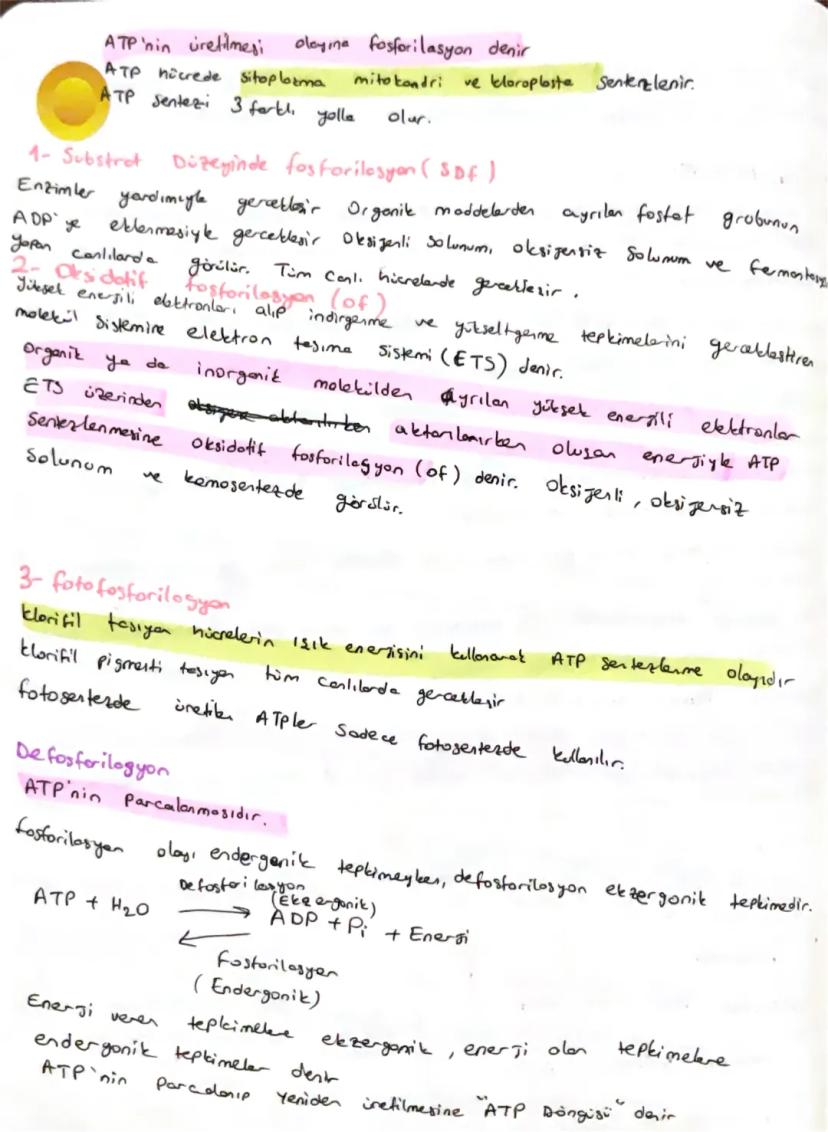 ATP'nin üretilmesi olayına fosforilasyon denir
ATP hücrede sitoplazma mitokondri ve kloroplasta sentezlenir.
ATP sentezi 3 farklı yolla olur.
1- Substrat Düzeyinde fosforilasyon (SDf)
Enzimler yardımıyla gerçekleşir Organik maddelerden ayrılan fosfat grubunun
ADP'ye eklenmesiyle gerçekleşir Oksijenli solunum, oksijensiz solunum ve fermantasyon
yapan canlılarda görülür. Tüm canlı hücrelerde gerçekleşir.
2- Oksidatif fosforilasyon (of)
Yüksek enerjili elektronları alıp indirgenme ve yükseltgenme tepkimelerini gerçekleştiren
molekül sistemine elektron taşıma sistemi (ETS) denir.
Organik ya da inorganik molekülden ayrılan yüksek enerjili elektronlar
ETS üzerinden aktarılanırken oluşan enerjiyle ATP
Sentezlenmesine oksidatif fosforilasyon (of) denir. Oksijenli, oksijensiz
Solunum ve kemosentezde görülür.
3- fotofosforilasyon
klorifil taşıyan hücrelerin ışık enerjisini kullanarak ATP sentezlenme olayıdır
klorifil pigmenti taşıyan tüm canlılarda gerçekleşir
fotosentezde üretilen ATPler Sadece fotosentezde kullanılır.
Defosforilasyon
ATP'nin Parçalanmasıdır.
fosforilasyon olayı endergonik tepkimeyken, defosforilasyon ekzergonik tepkimedir.
Defosforilasyon
(Ekzergonik)
ATP + H₂O → ADP + Pi + Enerji
←
Fosforilasyon
(Endergonik)
Enerji veren tepkimelere ekzergonik, enerji alan tepkimelere
endergonik tepkimeler denir
ATP'nin Parçalanıp yeniden üretilmesine "ATP Döngüsü" denir